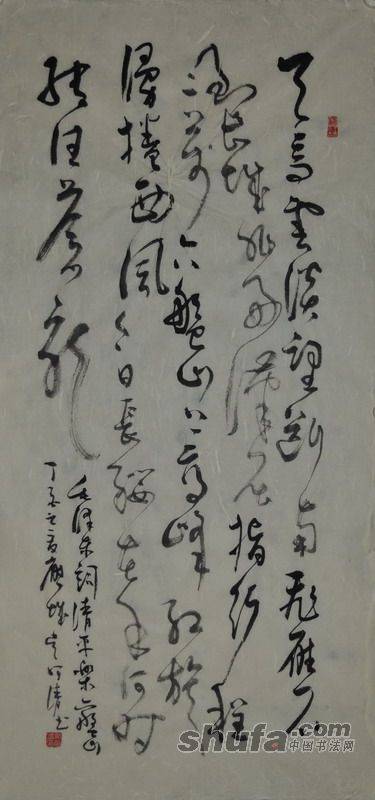 天高雲淡望斷南飛雁不
到長城非好漢屈指行程
二萬六盤山上高峰紅旗
漫捲西風今日長纓在手何時
縛住蒼龍
毛澤東詞清平樂六盤山
丁亥之夏應城
shufa.com
中国书法网